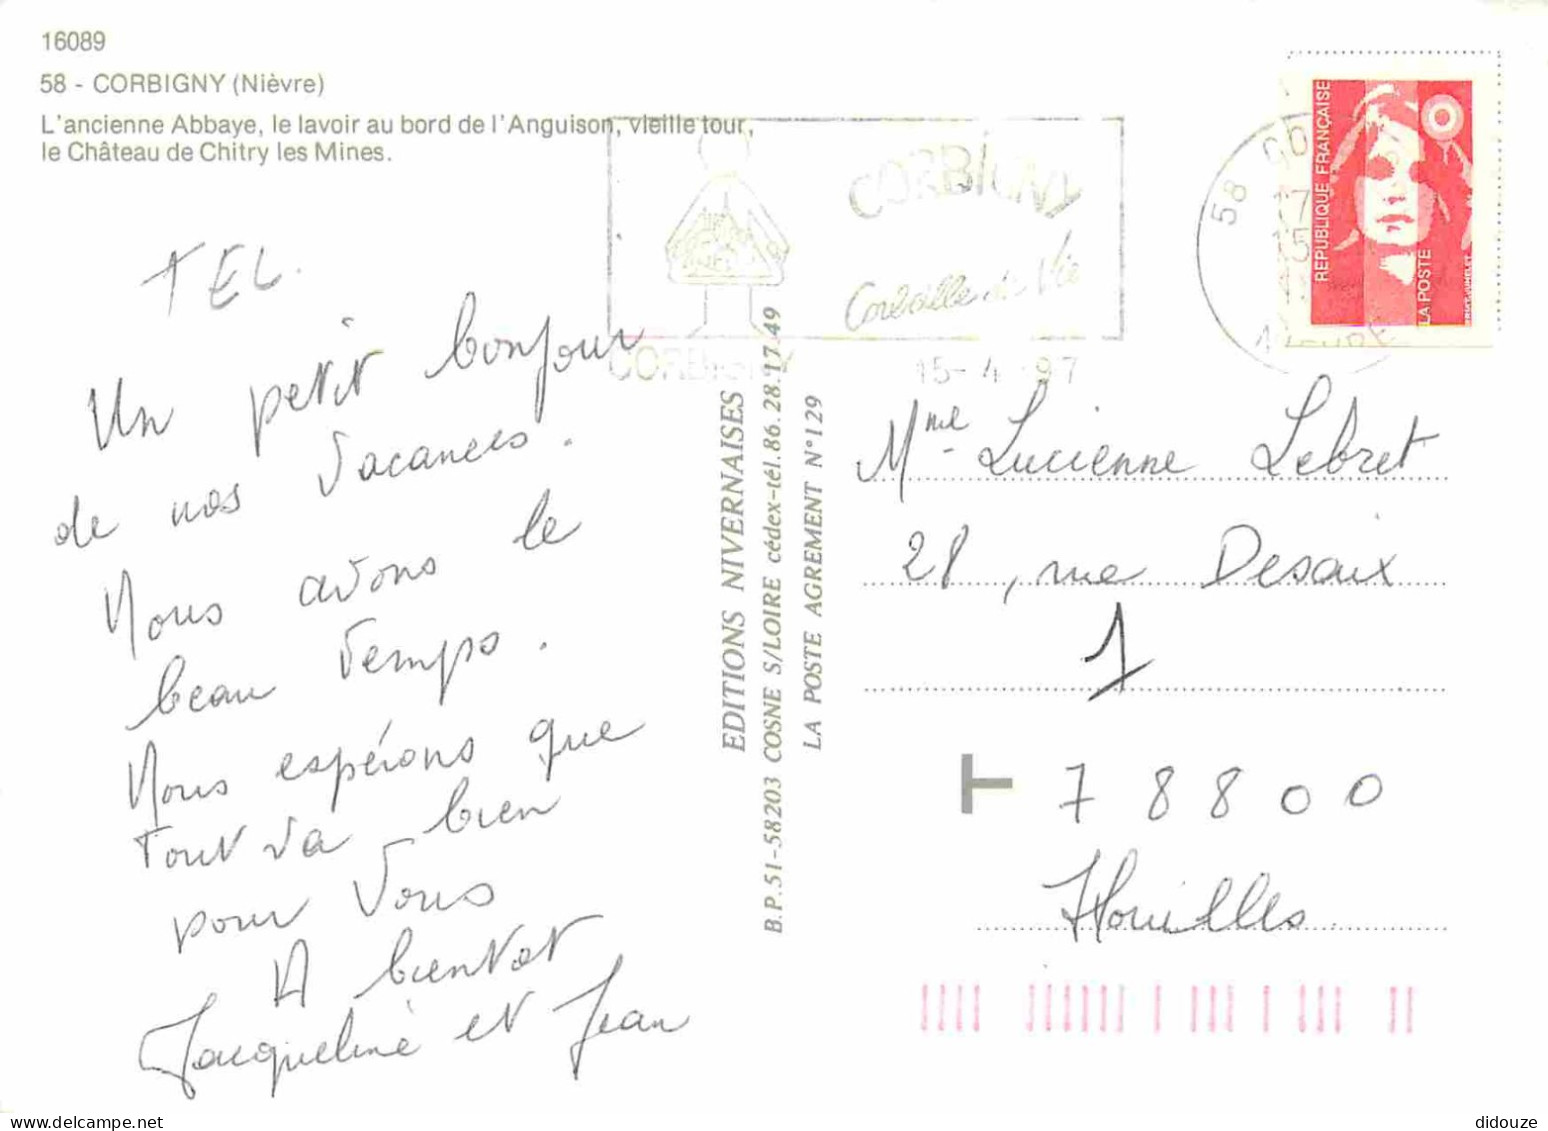 16089
58 - CORBIGNY (Nièvre)
L'ancienne Abbaye, le lavoir au bord de l'Anguison, vieille tour,
le Château de Chitry les Mines.
TEL.
Un petit bonjour
de nos vacances.
Nous avons le
beau temps.
Nous espérons que
tout va bien
pour vous
A bientot
Jacqueline et Jean
CORBIGNY
Corbeille de Vie
CORBIGNY
15-4 97
58 CO
17
15
NIEVRE
REPUBLIQUE FRANÇAISE
LA POSTE
EDITIONS NIVERNAISES
B.P.51-58203 COSNE S/LOIRE cédex-tél.86.28.17.49
LA POSTE AGREMENT N°129
Mme Lucienne Lebret
28, rue Desaix
1
T 78800
Houilles
didouze